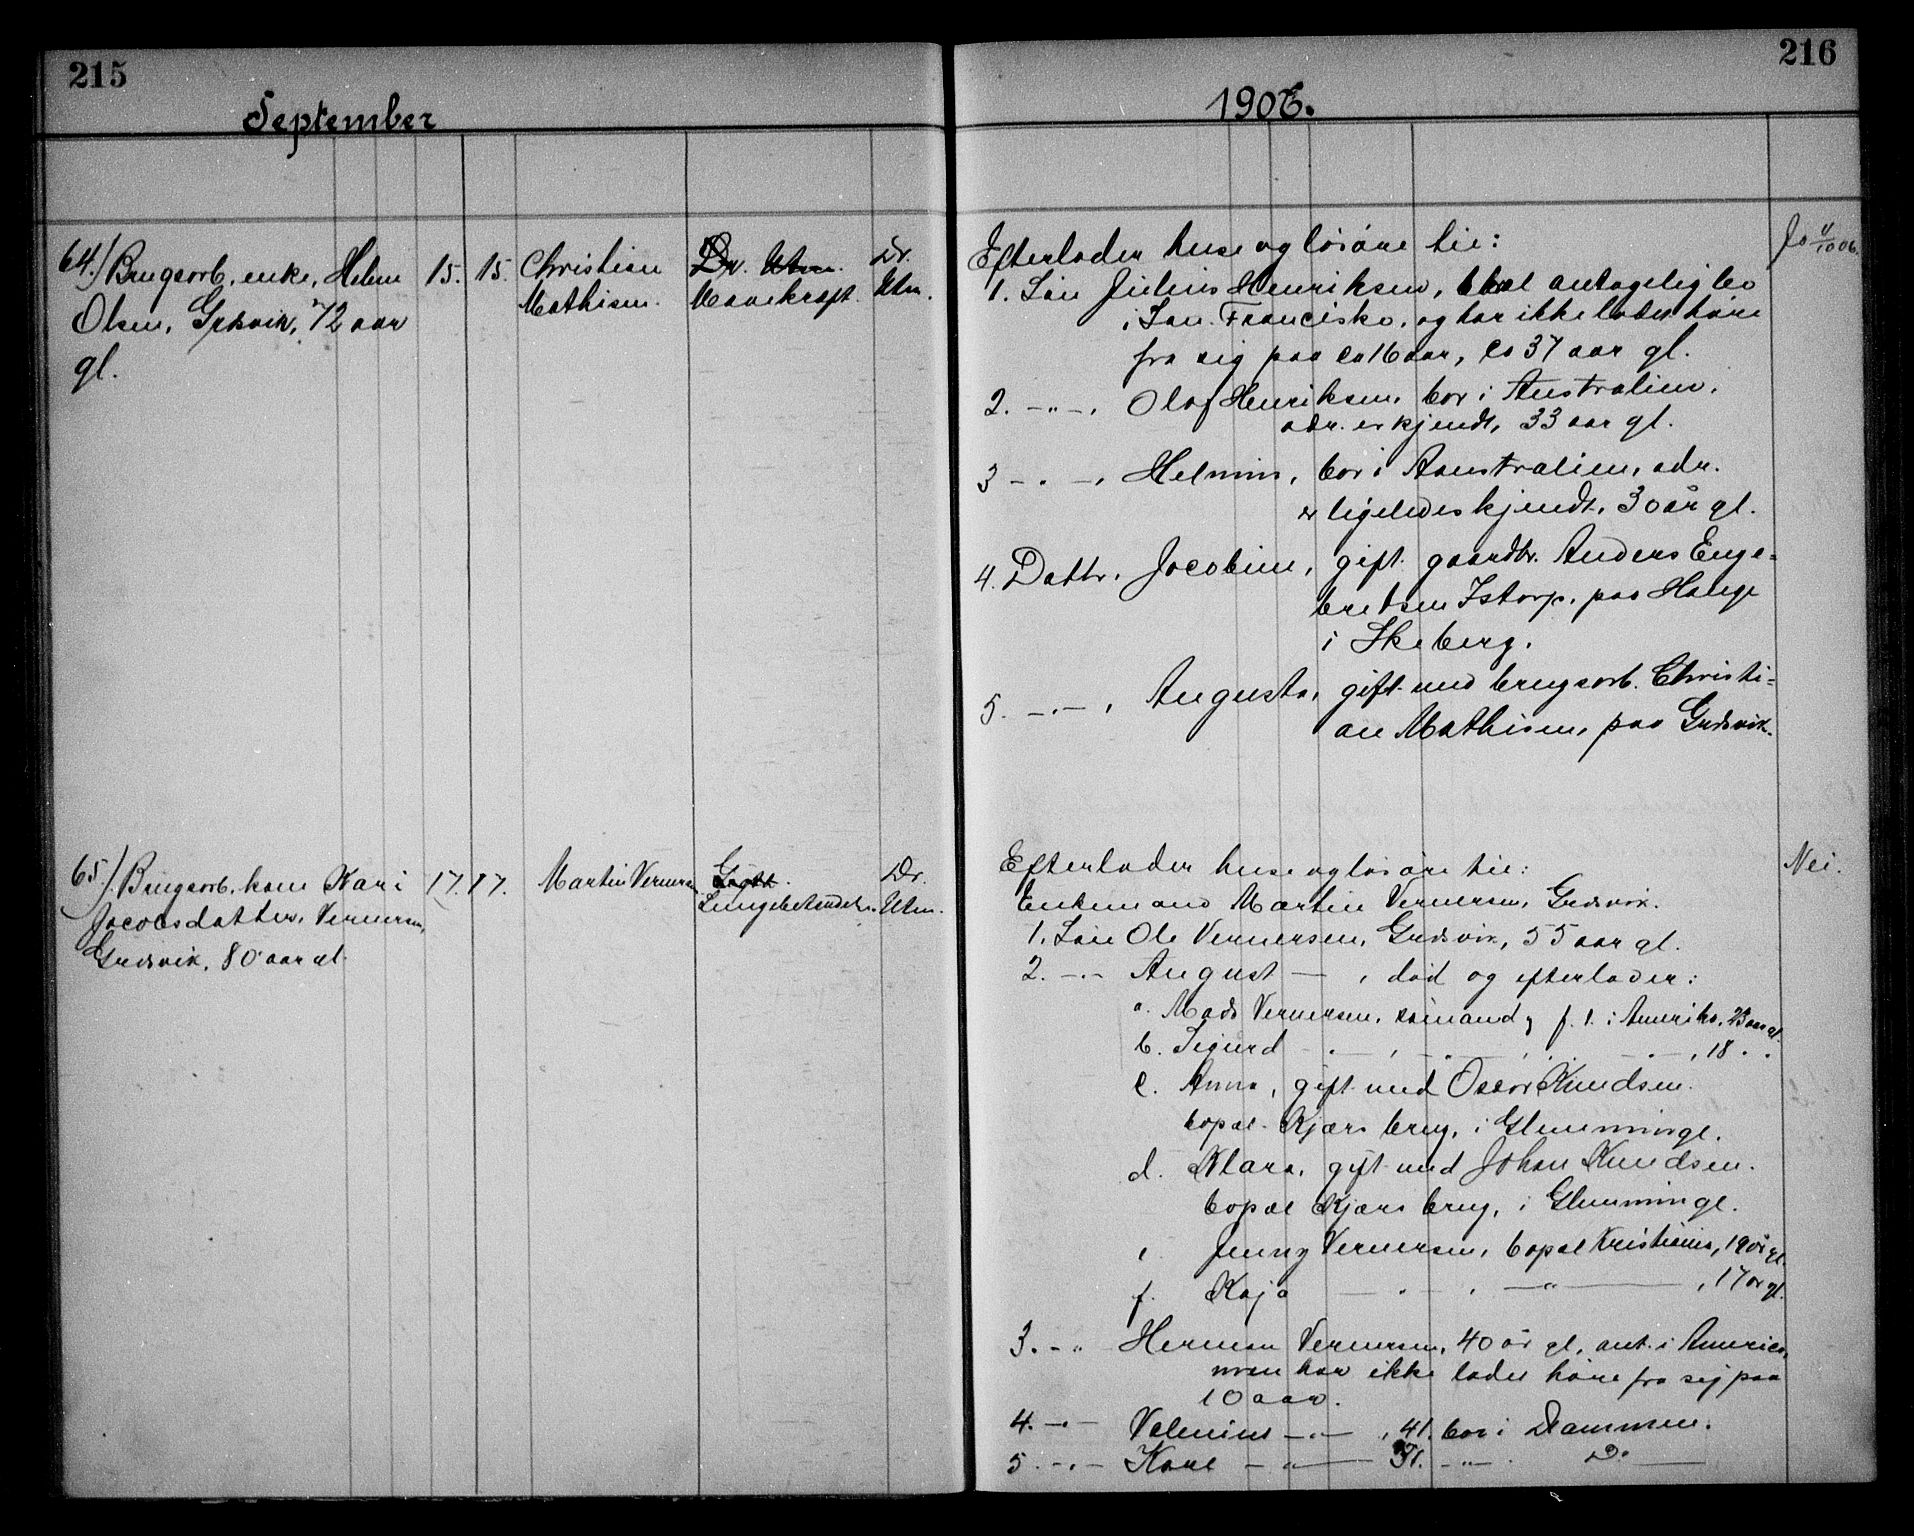 215
216
September
1906.
64.) Brugsarb. enke, Helene
Olsen, Gresvik, 72 aar
gl.
15. 15.
Christian
Mathisen.
Dr. Utne.
Mavekræft.
Dr.
Utn.
Efterlader huse og løsøre til:
1. Søn Julius Henriksen, skal antagelig bo
i San Francisko, og har ikke ladet høre
fra sig paa ca 16 aar, ca 37 aar gl.
2. -"-, Olaf Henriksen, bor i Australien,
adr. er kjendt, 33 aar gl.
3 -"-, Helmin, bor i Aaustralien, adr.
er ligeledes kjendt, 30 år gl.
4. Dattr. Jacobine, gift. gaardbr. Anders Enge=
bretsen Istorp, paa Hauge
i Skeberg.
5. -"-, Augusta, gift med brugsarb. Christi=
an Mathisen, paa Gresvik.
Ja 4/10 06.
65.) Brugsarb. kone Kari
Jacobsdatter Vernersen,
Gresvik, 80 aar gl.
17. 17.
Martin Vernersen
Lungebetændelse.
Dr.
Utn.
Efterlader huse og løsøre til:
Enkemand Martin Vernersen, Gresvik.
1. Søn Ole Vernersen, Gresvik, 55 aar gl.
2. -"- August —, død og efterlader:
a. Mads Vernersen, sømand, f. t. i Amerika, 23 aar gl.
b. Sigurd -"-, -"-, -"-, 18 " "
c. Anna, gift med Oscar Knudsen.
bopæl Kjærs brug, i Glemminge.
d. Klara, gift med Johan Knudsen.
bopæl Kjærs brug, i Glemminge.
e Jenny Vernersen, bopæl Kristiania, 19 år gl.
f. Kaja — " , —"—, 17 år gl.
3. -"- Herman Vernersen, 40 år gl, ant. i America,
men har ikke ladet høre fra sig paa
10 aar.
4. -"- Valenius -"-, 41. bor i Drammen.
5 -"- Karl -"- -"- Do —
Nei.